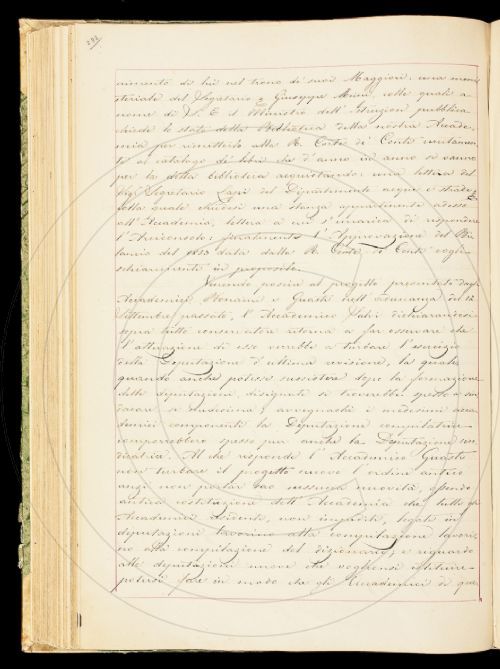 292
nimento di lui nel trono de' suoi Maggiori: una mini-
steriale del Segretario Giuseppe colle quali a
nome di S. E. il Ministro dell'Istruzione pubblica
chiede lo stato della Biblioteca della nostra Accade-
mia per rimetterlo alla R. Corte de' Conti unitamen-
te al catalogo di libri che d'anno in anno si vanno
per la detta biblioteca acquistando: una lettera del
Segretario del Dipartimento acque e strade,
colla quale chiedesi una stanza appartenente adesso
all'Accademia, lettera a cui s'incarica di rispondere
l'Arciconsolo: finalmente l'Approvazione del Bi-
lancio del data dalla R. Corte de' Conti cogli
schiarimenti in proposito.
Venendo poscia al progetto presentato dagli
Accademici e Guasti nell'adunanza del 12
Settembre passato, l'Accademico dichiarandosi
sopra tutto conservatore ritorna a far osservare che
l'attuazione di esso verrebbe a turbare l'esercizio
della Deputazione d'ultima revisione, la quale
quando anche potesse sussistere dopo la formazione
delle deputazioni disegnate si troverebbe spesso a
se medesima; avvegnachè i medesimi acca-
demici componenti la Deputazione compilatrice
comporrebbero spesso pur anche la Deputazione
Al che risponde l'Accademico Guasti
non turbare il progetto nuovo l'ordine antico
anzi non portar nessuna novità, essendo
antica costituzione dell'Accademia che tutti gli
Accademici residenti, non impediti, legati in
deputazioni lavorino alla compilazione
alla compilazione del dizionario; e riguardo
alle deputazioni nuove che vogliansi istituire
potersi fare in modo che gli Accademici di que-